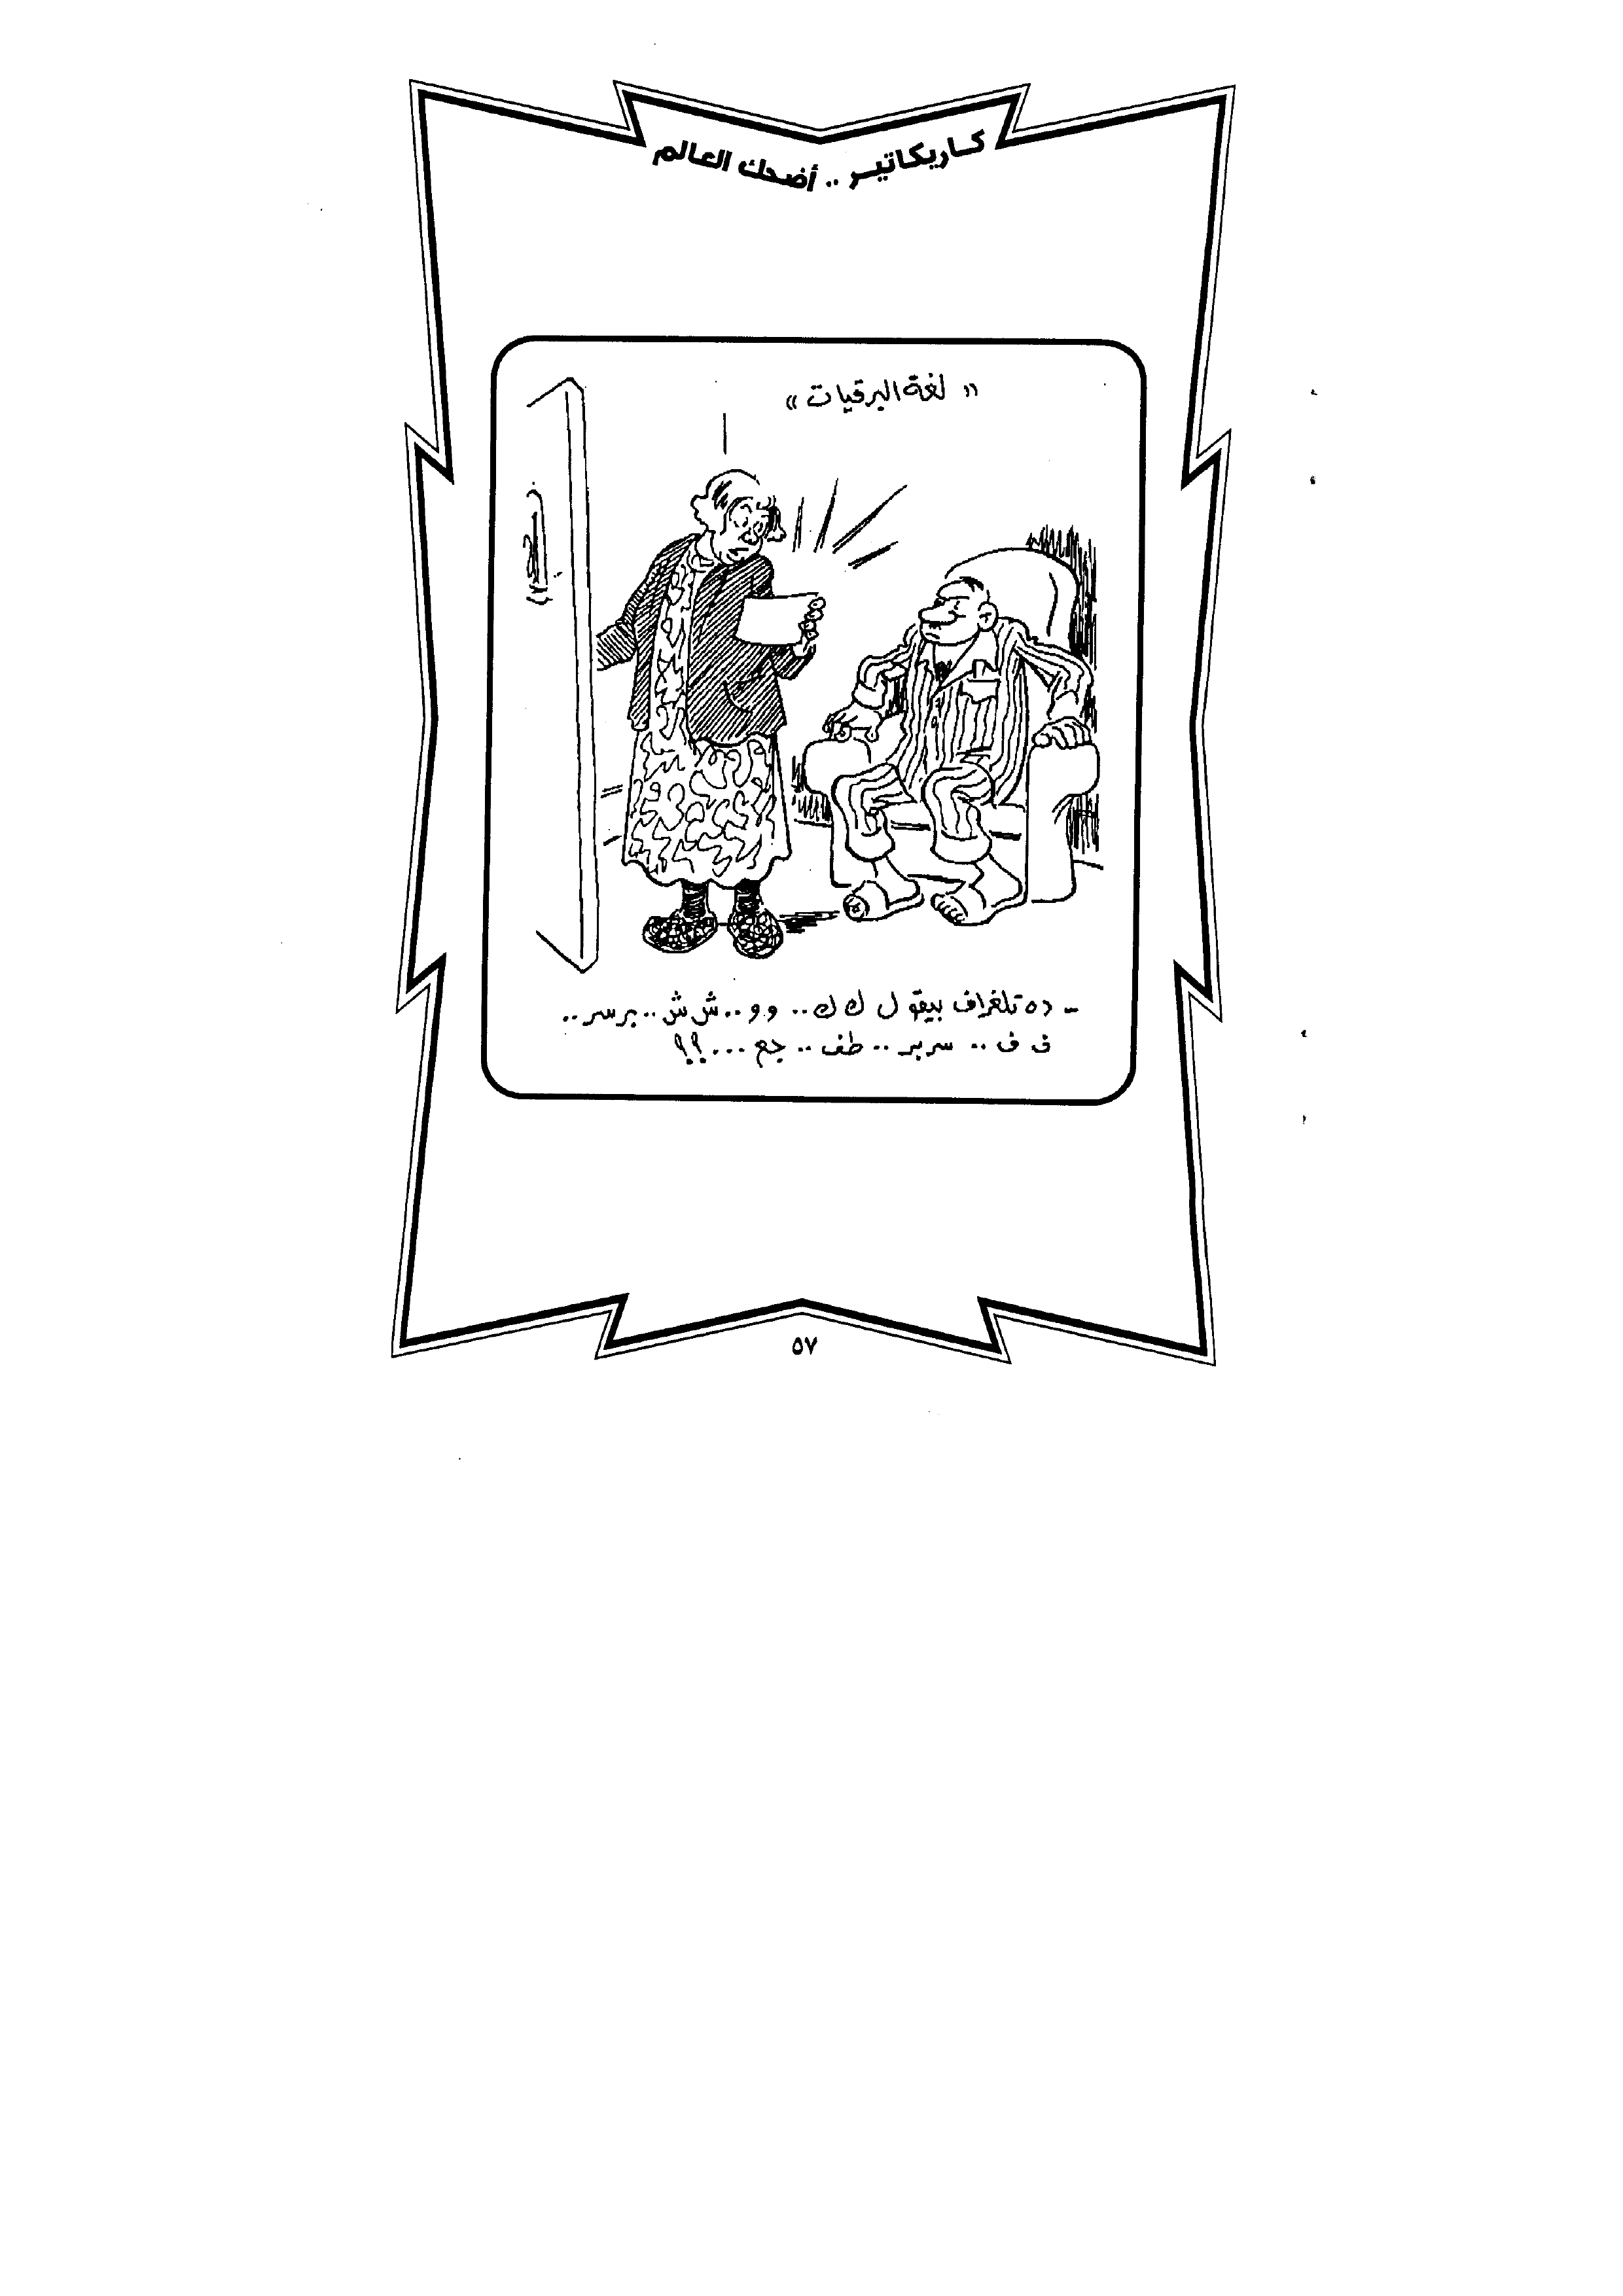 كاريكاتير .. أضحك العالم
« لغة البرقيات »
- ده تلغراف بيقول ك ك .. و و .. ش ش .. برسر ..
ف ف .. سربر .. طف .. جع ...؟؟
٥٧